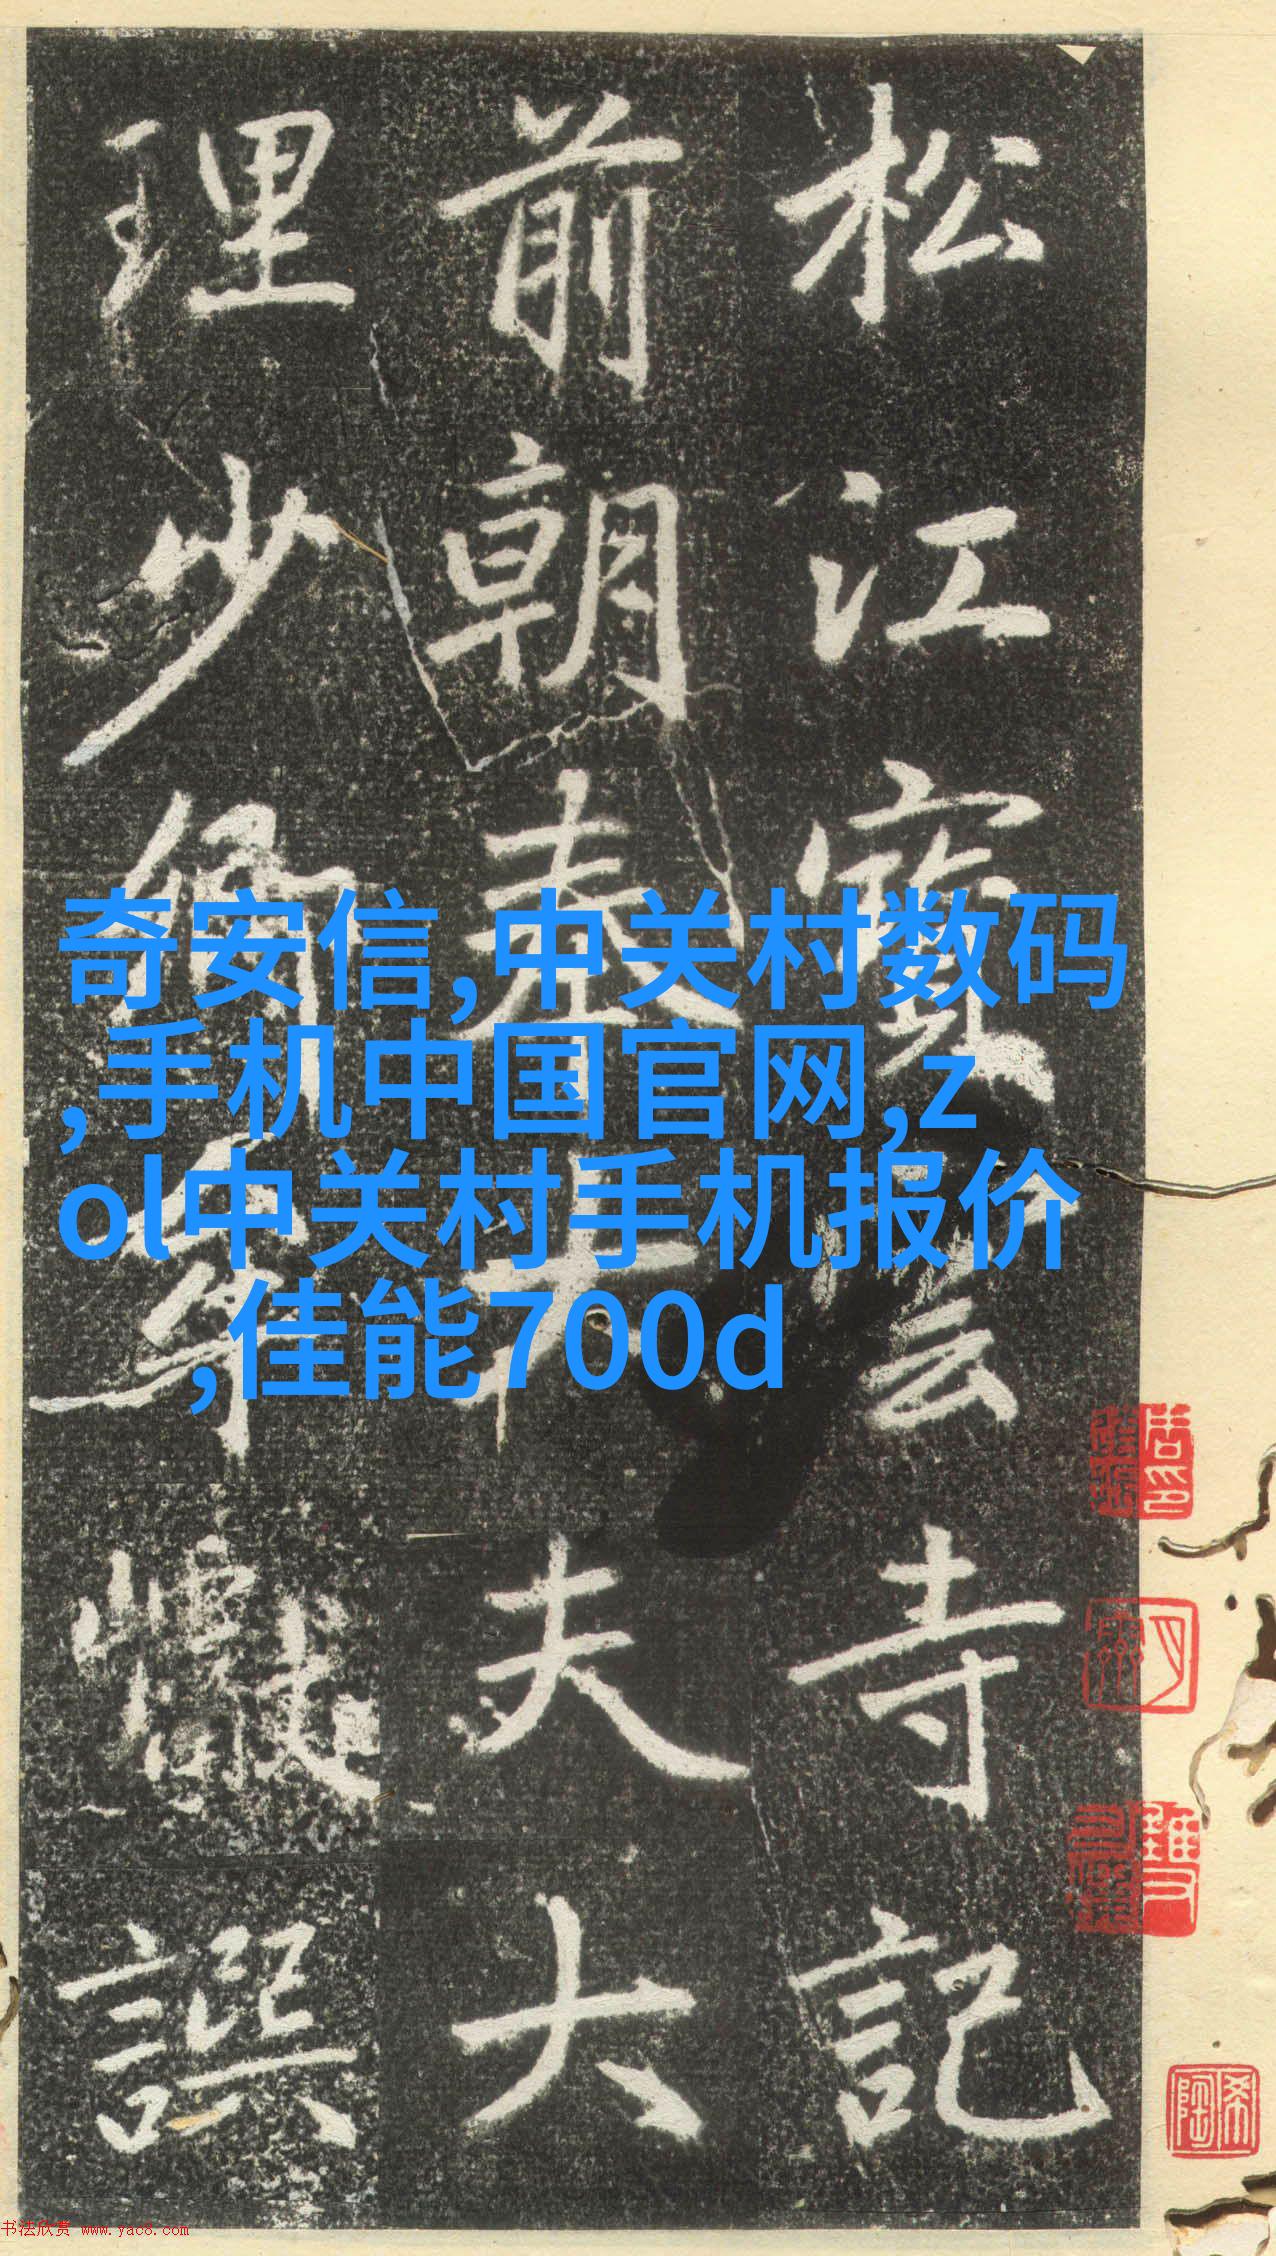 松江寶雲寺記
前朝奉大夫大
理少卿牟譔
奇安信,中关村数码
,手机中国官网,z
ol中关村手机报价
,佳能700d
希陶
书法欣赏 www.yac8.com